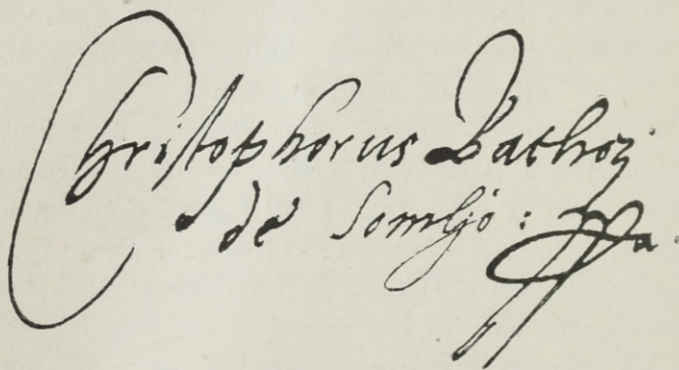 Christophorus Bathorj
de Somljo: ppa.